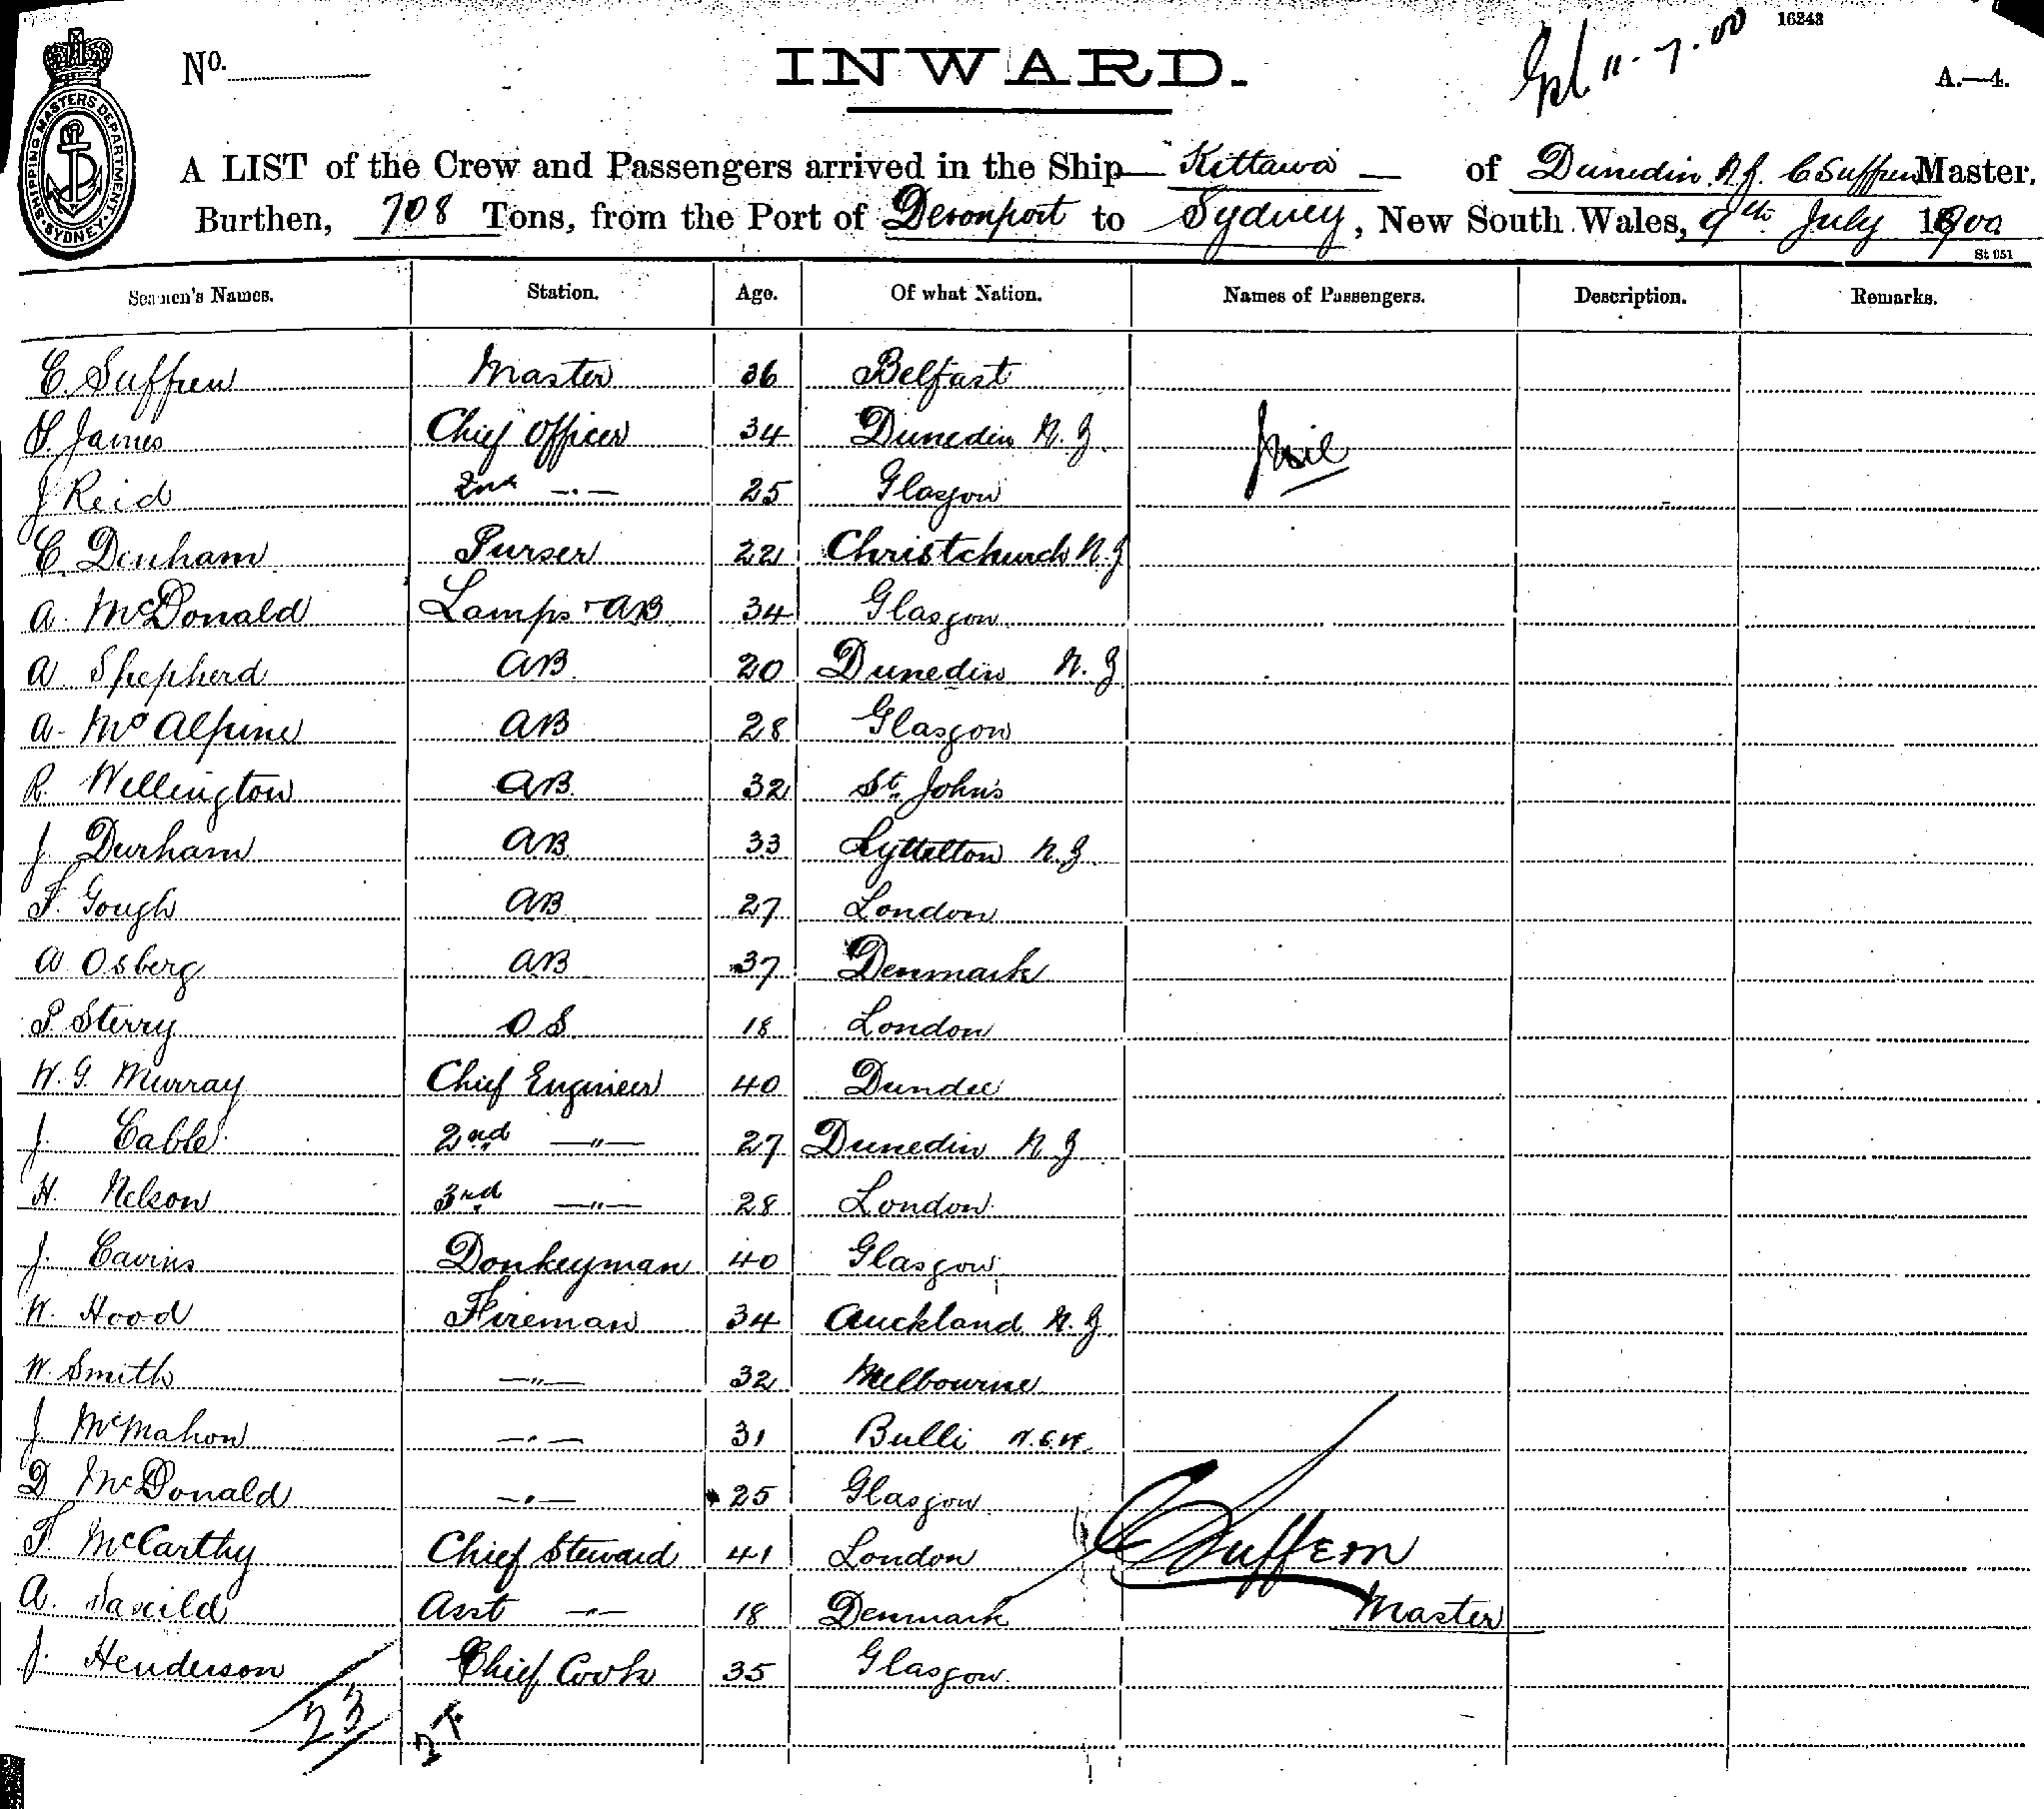 16243
No.
INWARD.
11.7.00
A.—4.
SHIPPING MASTERS DEPARTMENT SYDNEY
A LIST of the Crew and Passengers arrived in the Ship Kittawa of Dunedin N.Z. C Suffren Master,
Burthen, 708 Tons, from the Port of Devonport to Sydney, New South Wales, 9th July 1900
St 951
Seamen's Names. Station. Age. Of what Nation. Names of Passengers. Description. Remarks.
C. Suffren Master 36 Belfast
S. James Chief Officer 34 Dunedin N.Z. Nil
J Reid 2nd —"— 25 Glasgow
C. Denham Purser 22 Christchurch N.Z
A. McDonald Lamps & AB 34 Glasgow
A. Shepherd AB 20 Dunedin N.Z
A. McAlpine AB 28 Glasgow
R. Wellington AB 32 St. John's
J. Durham AB 33 Lyttelton N.Z.
F. Gough AB 27 London
A Osberg AB 37 Denmark
P. Sterry OS 18 London
W. G. Murray Chief Engineer 40 Dundee
J. Cable 2nd —"— 27 Dunedin N.Z
H. Nelson 3rd —"— 28 London
J. Cavins Donkeyman 40 Glasgow
W. Hood Fireman 34 Auckland N.Z
W. Smith —"— 32 Melbourne
J McMahon —"— 31 Bulli N.S.W.
D McDonald —"— 25 Glasgow
F. McCarthy Chief Steward 41 London CSuffern
A. Asst —"— 18 Denmark Master
J. Henderson Chief Cook 35 Glasgow
23